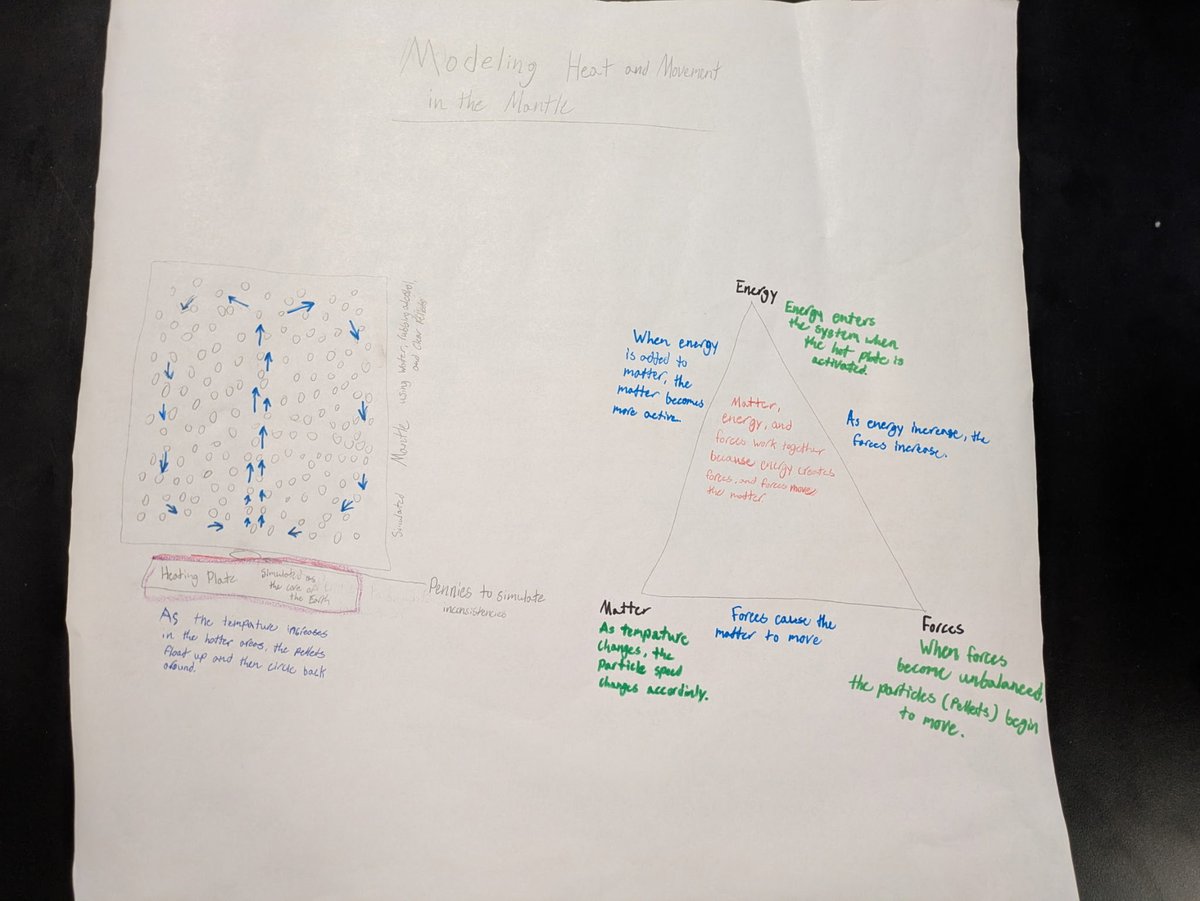 Modeling Heat and Movement
in the Mantle
Simulated Mantle using water, rubbing alcohol,
and clear Pellets
Heating Plate
Simulated as
the core of
the Earth
Pennies to simulate
inconsistencies
As the tempature increases
in the hotter areas, the pellets
float up and then circle back
around.
Energy
Energy enters
the system when
the hot plate is
activated.
When energy
is added to
matter, the
matter becomes
more active.
Matter,
energy, and
forces work together
because energy creates
forces, and forces moves
the matter
As energy increase, the
forces increase.
Matter
As tempature
changes, the
Particle speed
changes accordinly.
Forces cause the
matter to move
Forces
When forces
become unbalanced,
the particles (Pellets) begin
to move.